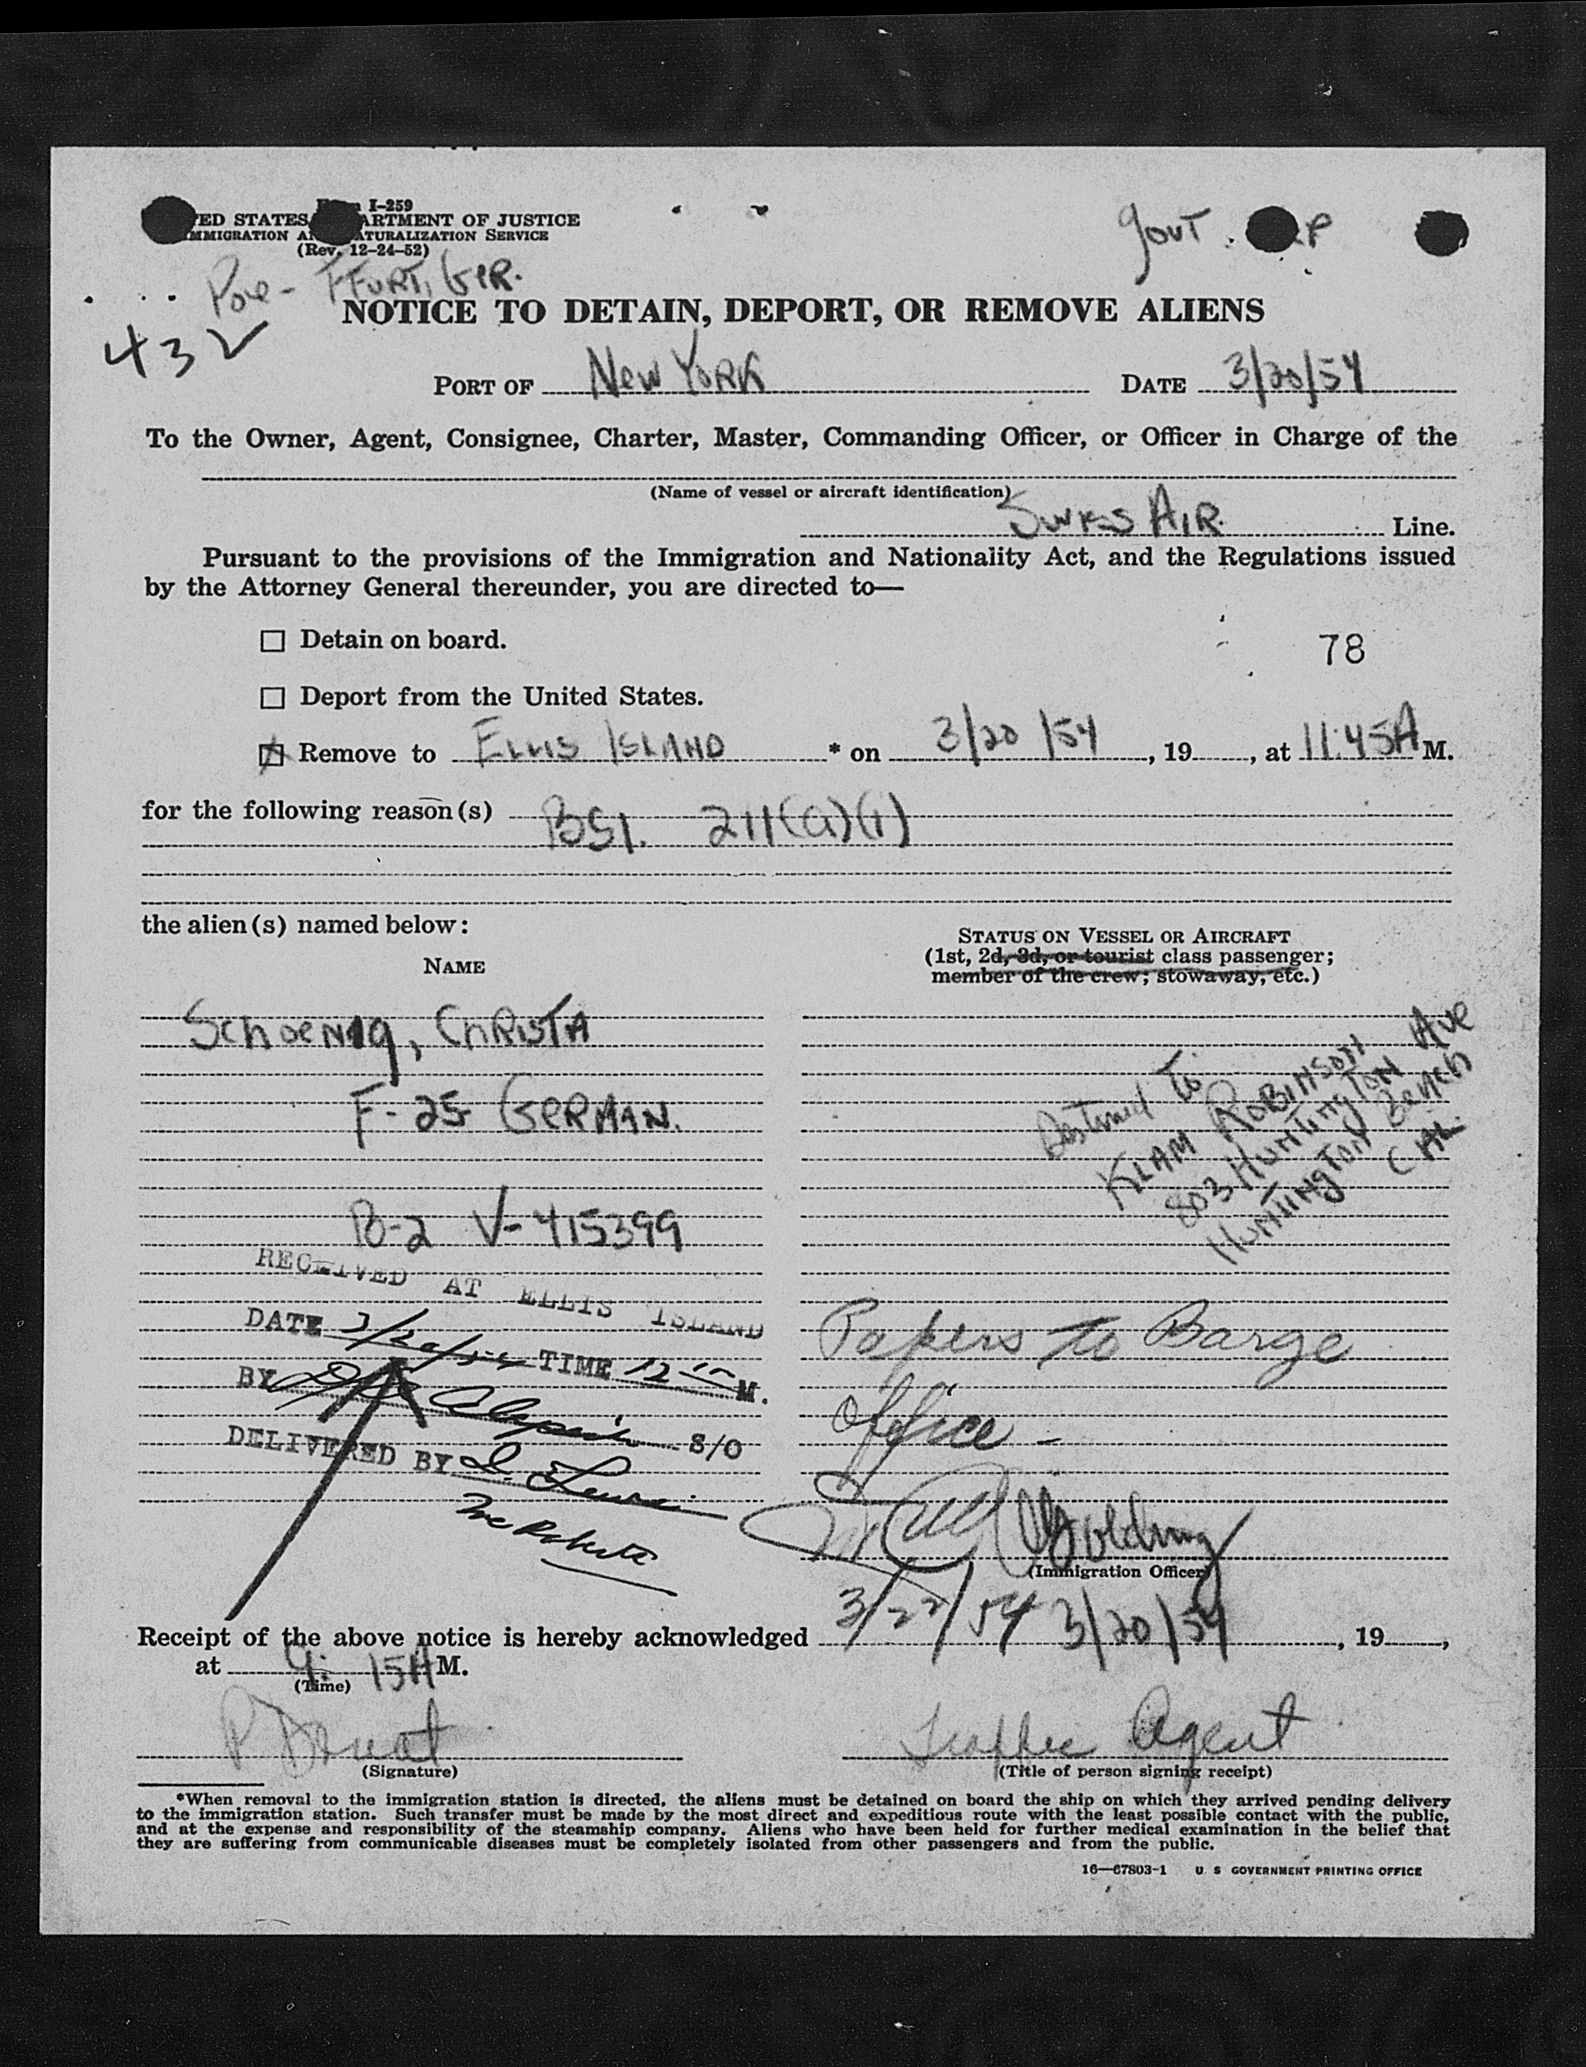 I-259
ED STATES ARTMENT OF JUSTICE
MMIGRATION A ATURALIZATION SERVICE
(Rev. 12-24-52)
Govt. P
Poe - FFURT, GER.
432
NOTICE TO DETAIN, DEPORT, OR REMOVE ALIENS
PORT OF New York DATE 3/20/54
To the Owner, Agent, Consignee, Charter, Master, Commanding Officer, or Officer in Charge of the
(Name of vessel or aircraft identification)
Swiss Air Line.
Pursuant to the provisions of the Immigration and Nationality Act, and the Regulations issued
by the Attorney General thereunder, you are directed to—
☐ Detain on board.
78
☐ Deport from the United States.
☒ Remove to Ellis Island * on 3/20/54, 19, at 11:45A M.
for the following reason(s) BSI. 211(a)(1)
the alien(s) named below:
NAME
STATUS ON VESSEL OR AIRCRAFT
(1st, 2d, 3d, or tourist class passenger;
member of the crew; stowaway, etc.)
Schoenig, Christa
F-25 German.
Destined to
Klam Robinson
803 Huntington Ave
Huntington Beach
Cal.
B-2 V-415399
RECEIVED AT ELLIS ISLAND
DATE 3/20/54 TIME 12 M.
BY S/O
DELIVERED BY
Papers to Barge
Office -
Golding
(Immigration Officer)
3/22/54
Receipt of the above notice is hereby acknowledged 3/20/54, 19,
at 9:15A M.
(Time)
P
Traffic Agent
(Signature)
(Title of person signing receipt)
*When removal to the immigration station is directed, the aliens must be detained on board the ship on which they arrived pending delivery
to the immigration station. Such transfer must be made by the most direct and expeditious route with the least possible contact with the public,
and at the expense and responsibility of the steamship company. Aliens who have been held for further medical examination in the belief that
they are suffering from communicable diseases must be completely isolated from other passengers and from the public.
16—67803-1 U S GOVERNMENT PRINTING OFFICE